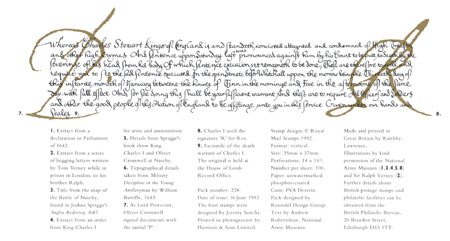 Whereas Charles Steuart Kinge of England is and standeth convicted attaynted and condemned of High Treason
and other high Crymes And Sentence uppon Saturday last pronounced against him by this Court to be putt to death by the
severinge of his head from his body Of which Sentence execucon yet remayneth to be done These are therefore to will and
require you to see the said Sentence executed In the open Streete before Whitehall uppon the morrowe being the Thirtieth day of
this instante moneth of January betweene the houres of Tenn in the morninge and Five in the afternoone of the same
day with full effect And for soe doing this shall be your sufficient warrant And these are to require All Officers and Souldiers
and other the good people of this Nation of England to be assistinge unto you in this service Given under our hands and
Seales
7.
9.
8.
1. Extract from a
declaration in Parliament
of 1642.
2. Extract from a series
of begging letters written
by Tom Verney while in
prison in London, to his
brother Ralph.
3. Title from the map of
the Battle of Naseby,
found in Joshua Sprigge's
Anglia Rediviva, 1647.
4. Extract from an order
from King Charles I
for arms and ammunition.
5. Details from Sprigge's
book show King
Charles I and Oliver
Cromwell at Naseby.
6. Typographical details
taken from Military
Discipline or the Young
Artilleryman by William
Barriffe, 1643.
7. As Lord Protector,
Oliver Cromwell
signed documents with
the initial 'P'
8. Charles I used the
signature 'R' for Rex.
9. Facsimile of the death
warrant of Charles I.
The original is held at
the House of Lords
Record Office.
Pack number: 228.
Date of issue: 16 June 1992.
The four stamps were
designed by Jeremy Sancha.
Printed in photogravure by
Harrison & Sons Limited.
Stamp designs © Royal
Mail Stamps 1992.
Format: vertical.
Size: 35mm x 37mm.
Perforations: 14 x 145.
Number per sheet: 100.
Paper: unwatermarked
phosphor-coated.
Gum: PVA Dextrin.
Pack designed by
Roundel Design Group.
Text by Andrew
Robertshaw, National
Army Museum.
Made and printed in
Great Britain by Raithby,
Lawrence.
Illustrations by kind
permission of the National
Army Museum (1,3,4,5,6)
and Sir Ralph Verney (2).
Further details about
British postage stamps and
philatelic facilities can be
obtained from the
British Philatelic Bureau,
20 Brandon Street,
Edinburgh EH3 5TT.